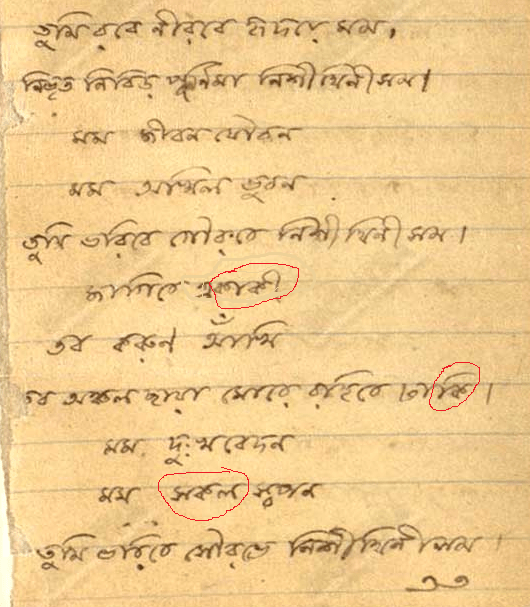 তুমি রবে নীরবে হৃদয়ে মম,
নিভৃত নিবিড় পূর্ণিমা নিশীথিনীসম।
মম জীবন যৌবন
মম অখিল ভুবন
তুমি ভরিবে গৌরবে নিশীথিনী সম।
জাগিবে একাকী
তব করুণ আঁখি
তব অঞ্চল ছায়া মোরে রহিবে ঢাকি।
মম দুঃখবেদন
মম সকল স্বপন
তুমি ভরিবে সৌরভে নিশীথিনীসম।